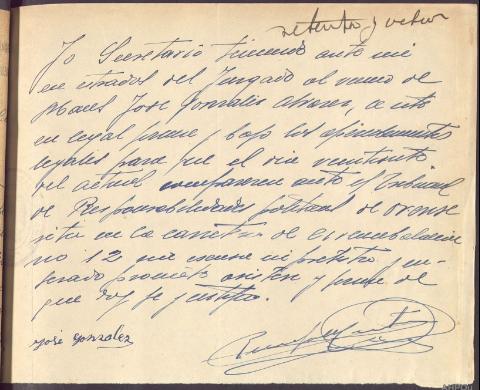 setenta y ocho
Yo Secretario teniendo ante mi
en estrados del Juzgado al vecino de
José Gonzalez Alvarez, a este
en legal forma y bajo los apercibimientos
legales para que el dia veintiocho
del actual comparezca ante el Tribunal
de Responsabilidades politicas de Orense
sita en la carretera de circunvalacion
no 12 sin escusa ni pretexto y en-
terado promete asistir y firma de
que doy fe y justifico.
José Gonzalez